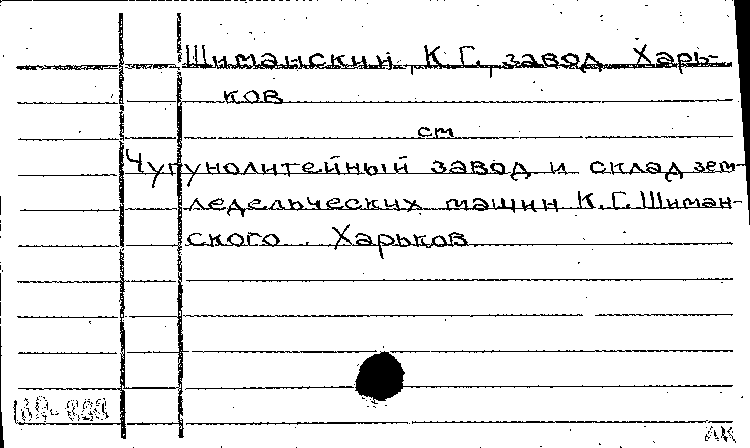 Шиманский, К.Г., завод Харь-
ков
см
Чугунолитейный завод и склад зем-
ледельческих машин К.Г. Шиман-
ского. Харьков
АК